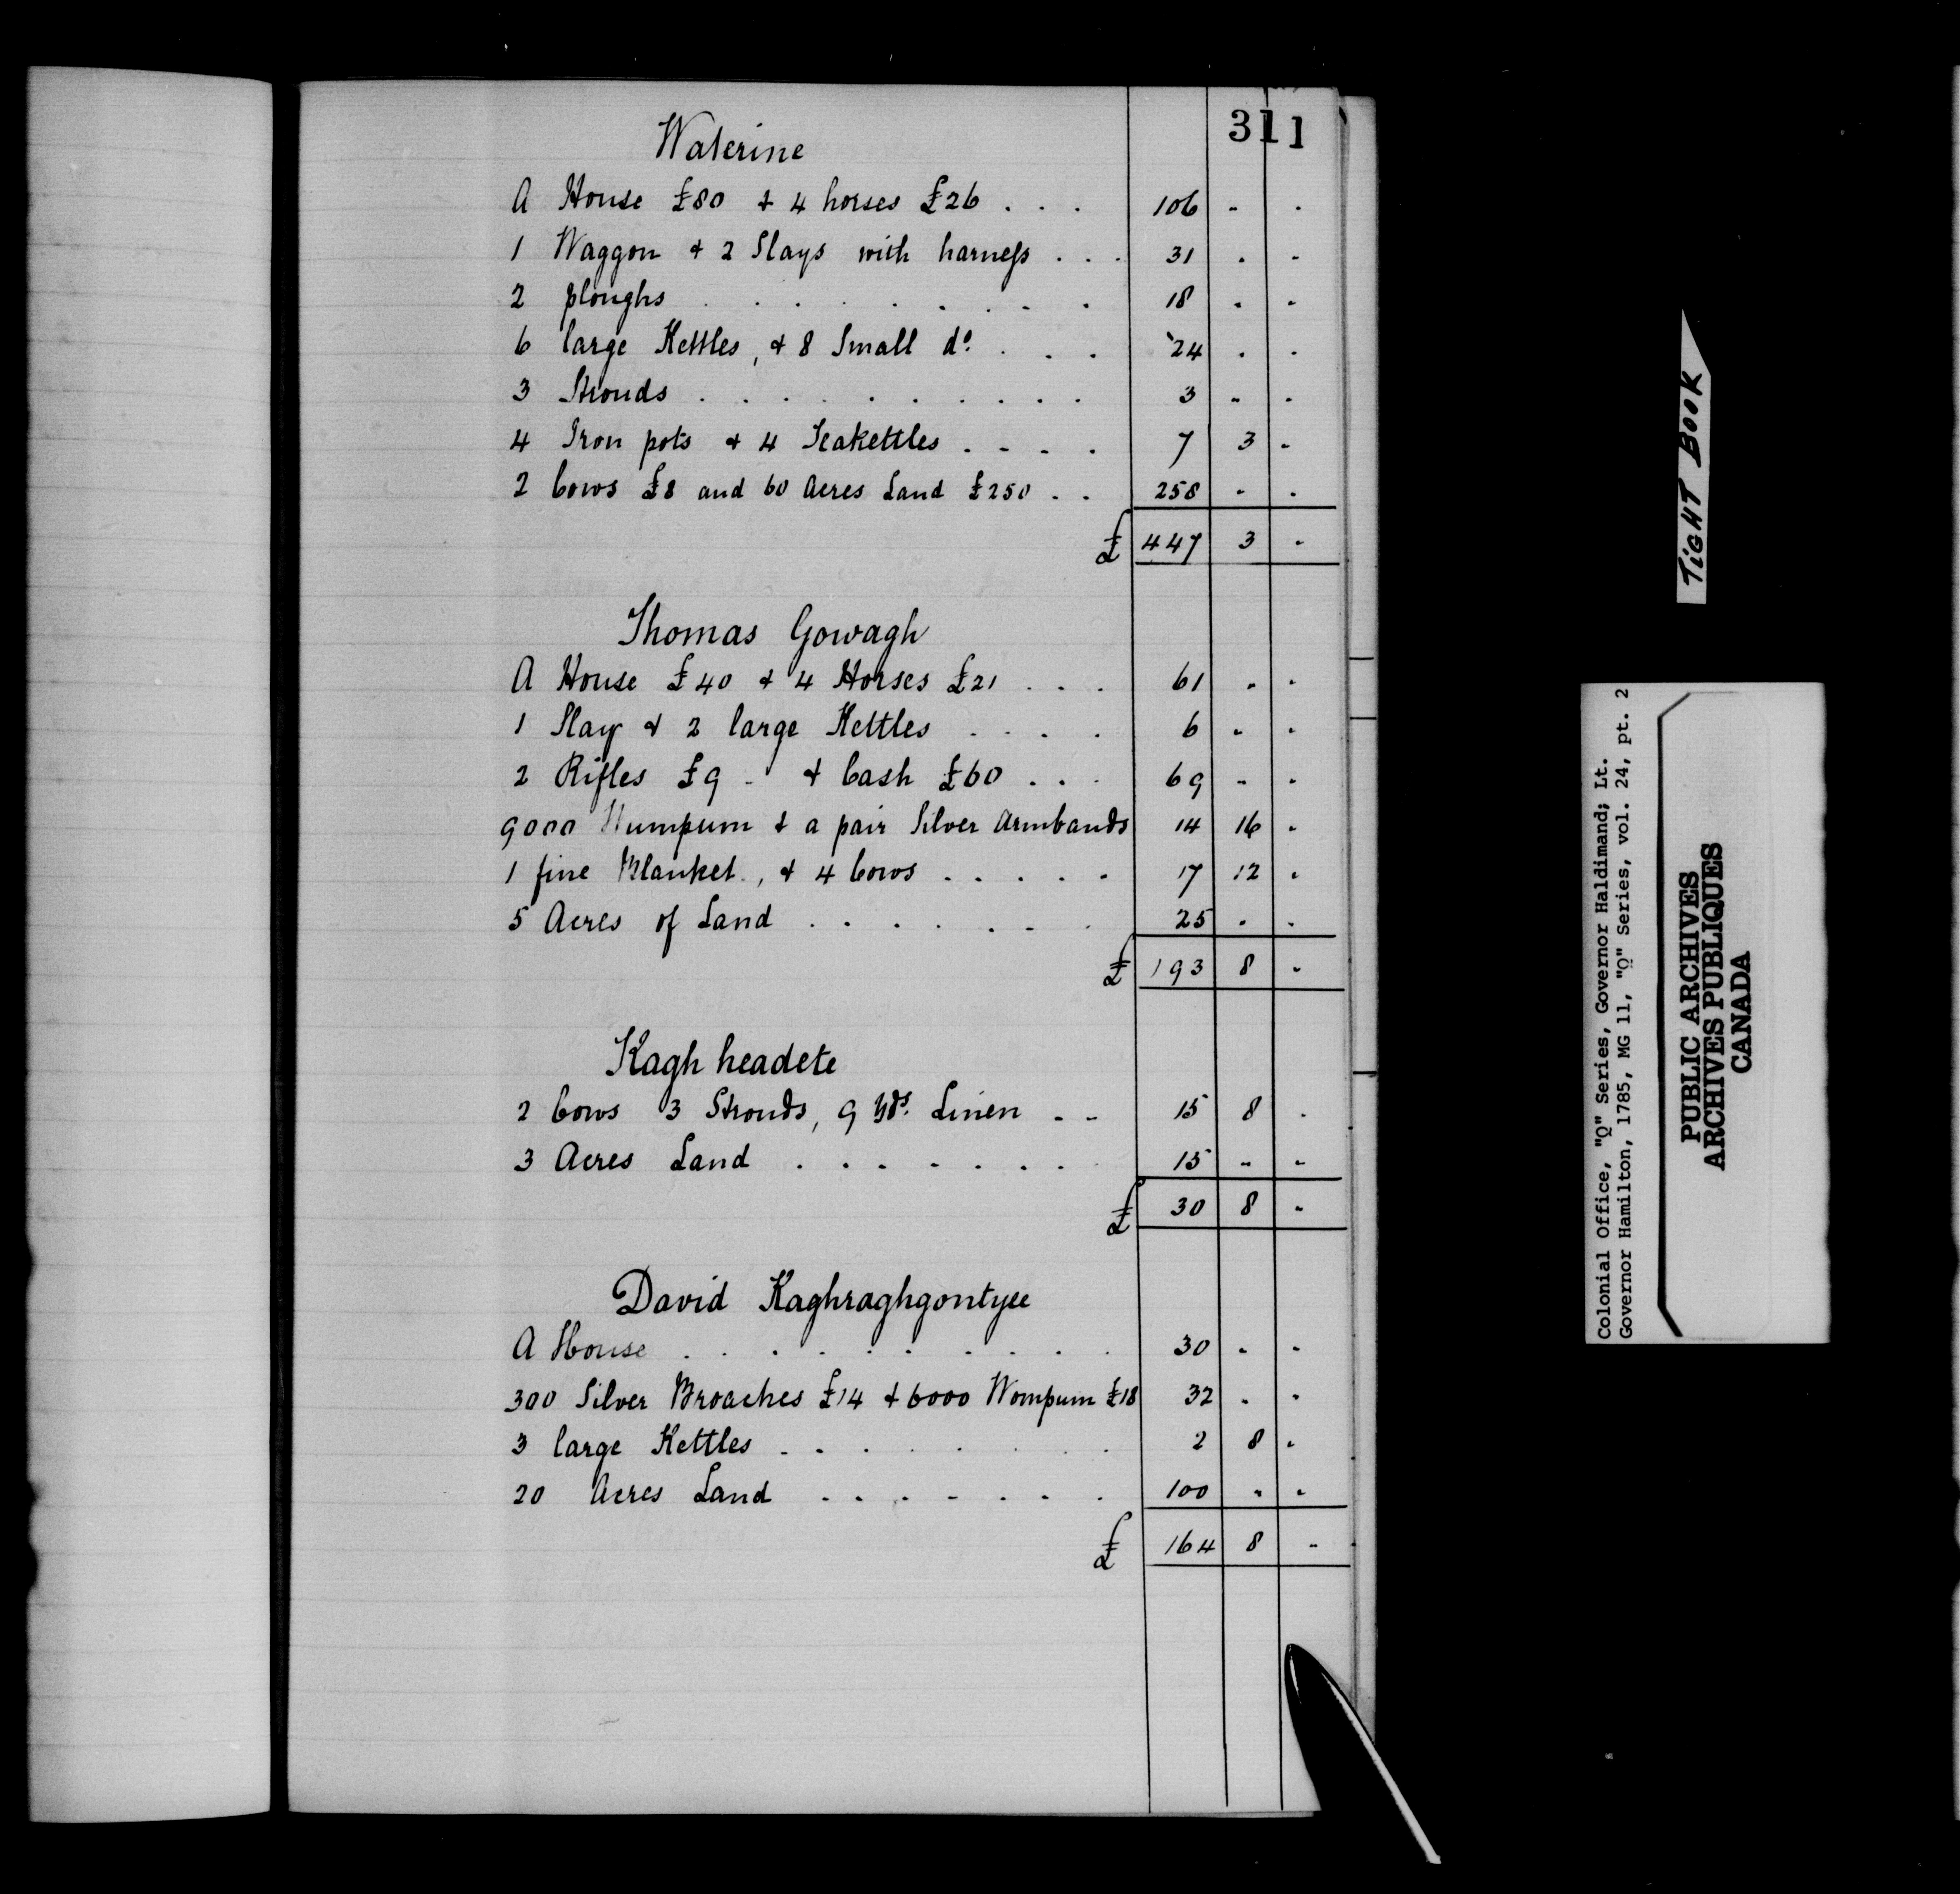 311
Waterine
A House £80 & 4 horses £26 . . . 106 - .
1 Waggon & 2 Slays with harness . . . 31 . -
2 ploughs . . . . . . . . . 18 - -
6 large Kettles, & 8 Small do. . . . 24 . .
3 Strouds . . . . . . . . . 3 - .
4 Iron pots & 4 Teakettles . - - . 7 3 -
2 Cows £8 and 60 Acres Land £250 . . 258 - .
£ 447 3 -
Thomas Gowagh
A House £40 & 4 Horses £21 . . . 61 . .
1 Slay & 2 large Kettles . . . . 6 - .
2 Rifles £9 - & Cash £60 . . . 69 - .
9000 Wumpum & a pair Silver Armbands 14 16 -
1 fine Blanket, & 4 Cows . . . . . 17 12 .
5 Acres of Land . . . . . . . 25 . .
£ 193 8 -
Kagh headete
2 Cows 3 Strouds, 9 Yds. Linen - - 15 8 .
3 Acres Land . . . . . . . 15 - -
£ 30 8 -
David Kaghraghgontyee
A House . . . . . . . . . 30 - -
300 Silver Broaches £14 & 6000 Wompum £18 32 . .
3 large Kettles - . . . . . . . 2 8 -
20 Acres Land . . . . . . . 100 - -
£ 164 8 -
TIGHT BOOK
Colonial Office, "Q" Series, Governor Haldimand; Lt.
Governor Hamilton, 1785, MG 11, "Q" Series, vol. 24, pt. 2
PUBLIC ARCHIVES
ARCHIVES PUBLIQUES
CANADA